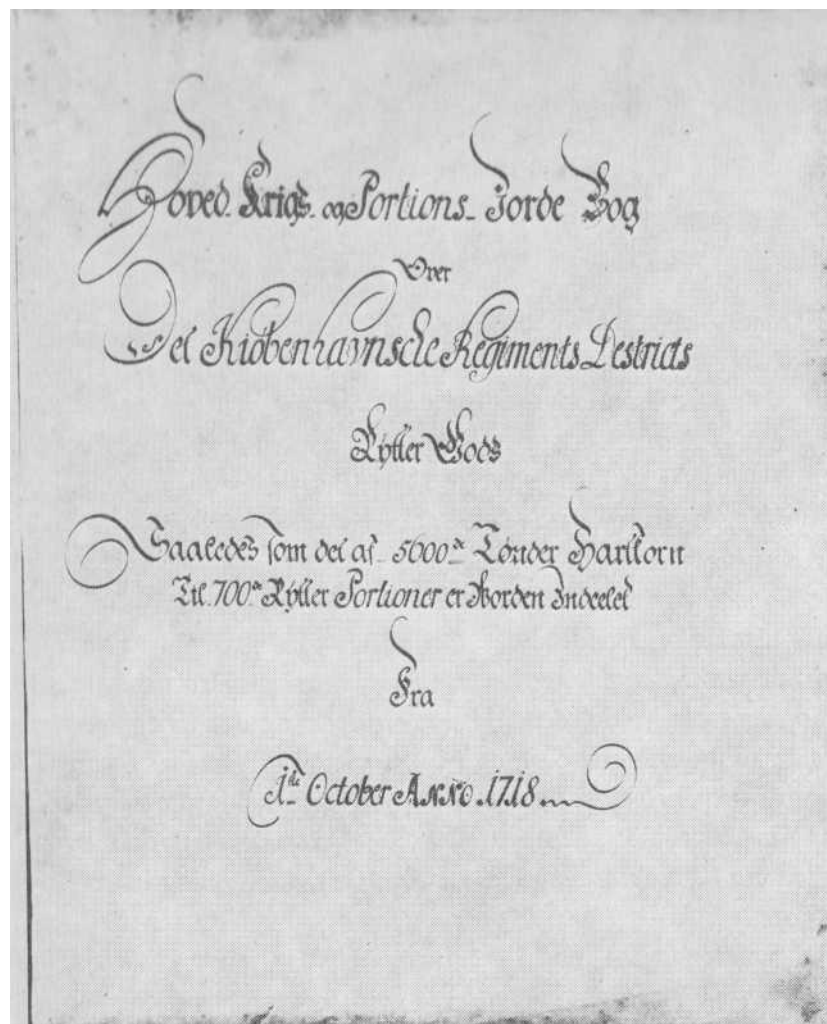 Hoved Krigs og Portions Jorde Bog
Over
Det Kiøbenhavnsche Regiments Destricts
Rytter Gods
Saaledes som det af 5600de Tønder Hartkorn
Til 700de Rytter Portioner er Vorden Indeelet
Fra
1te October ANNO 1718